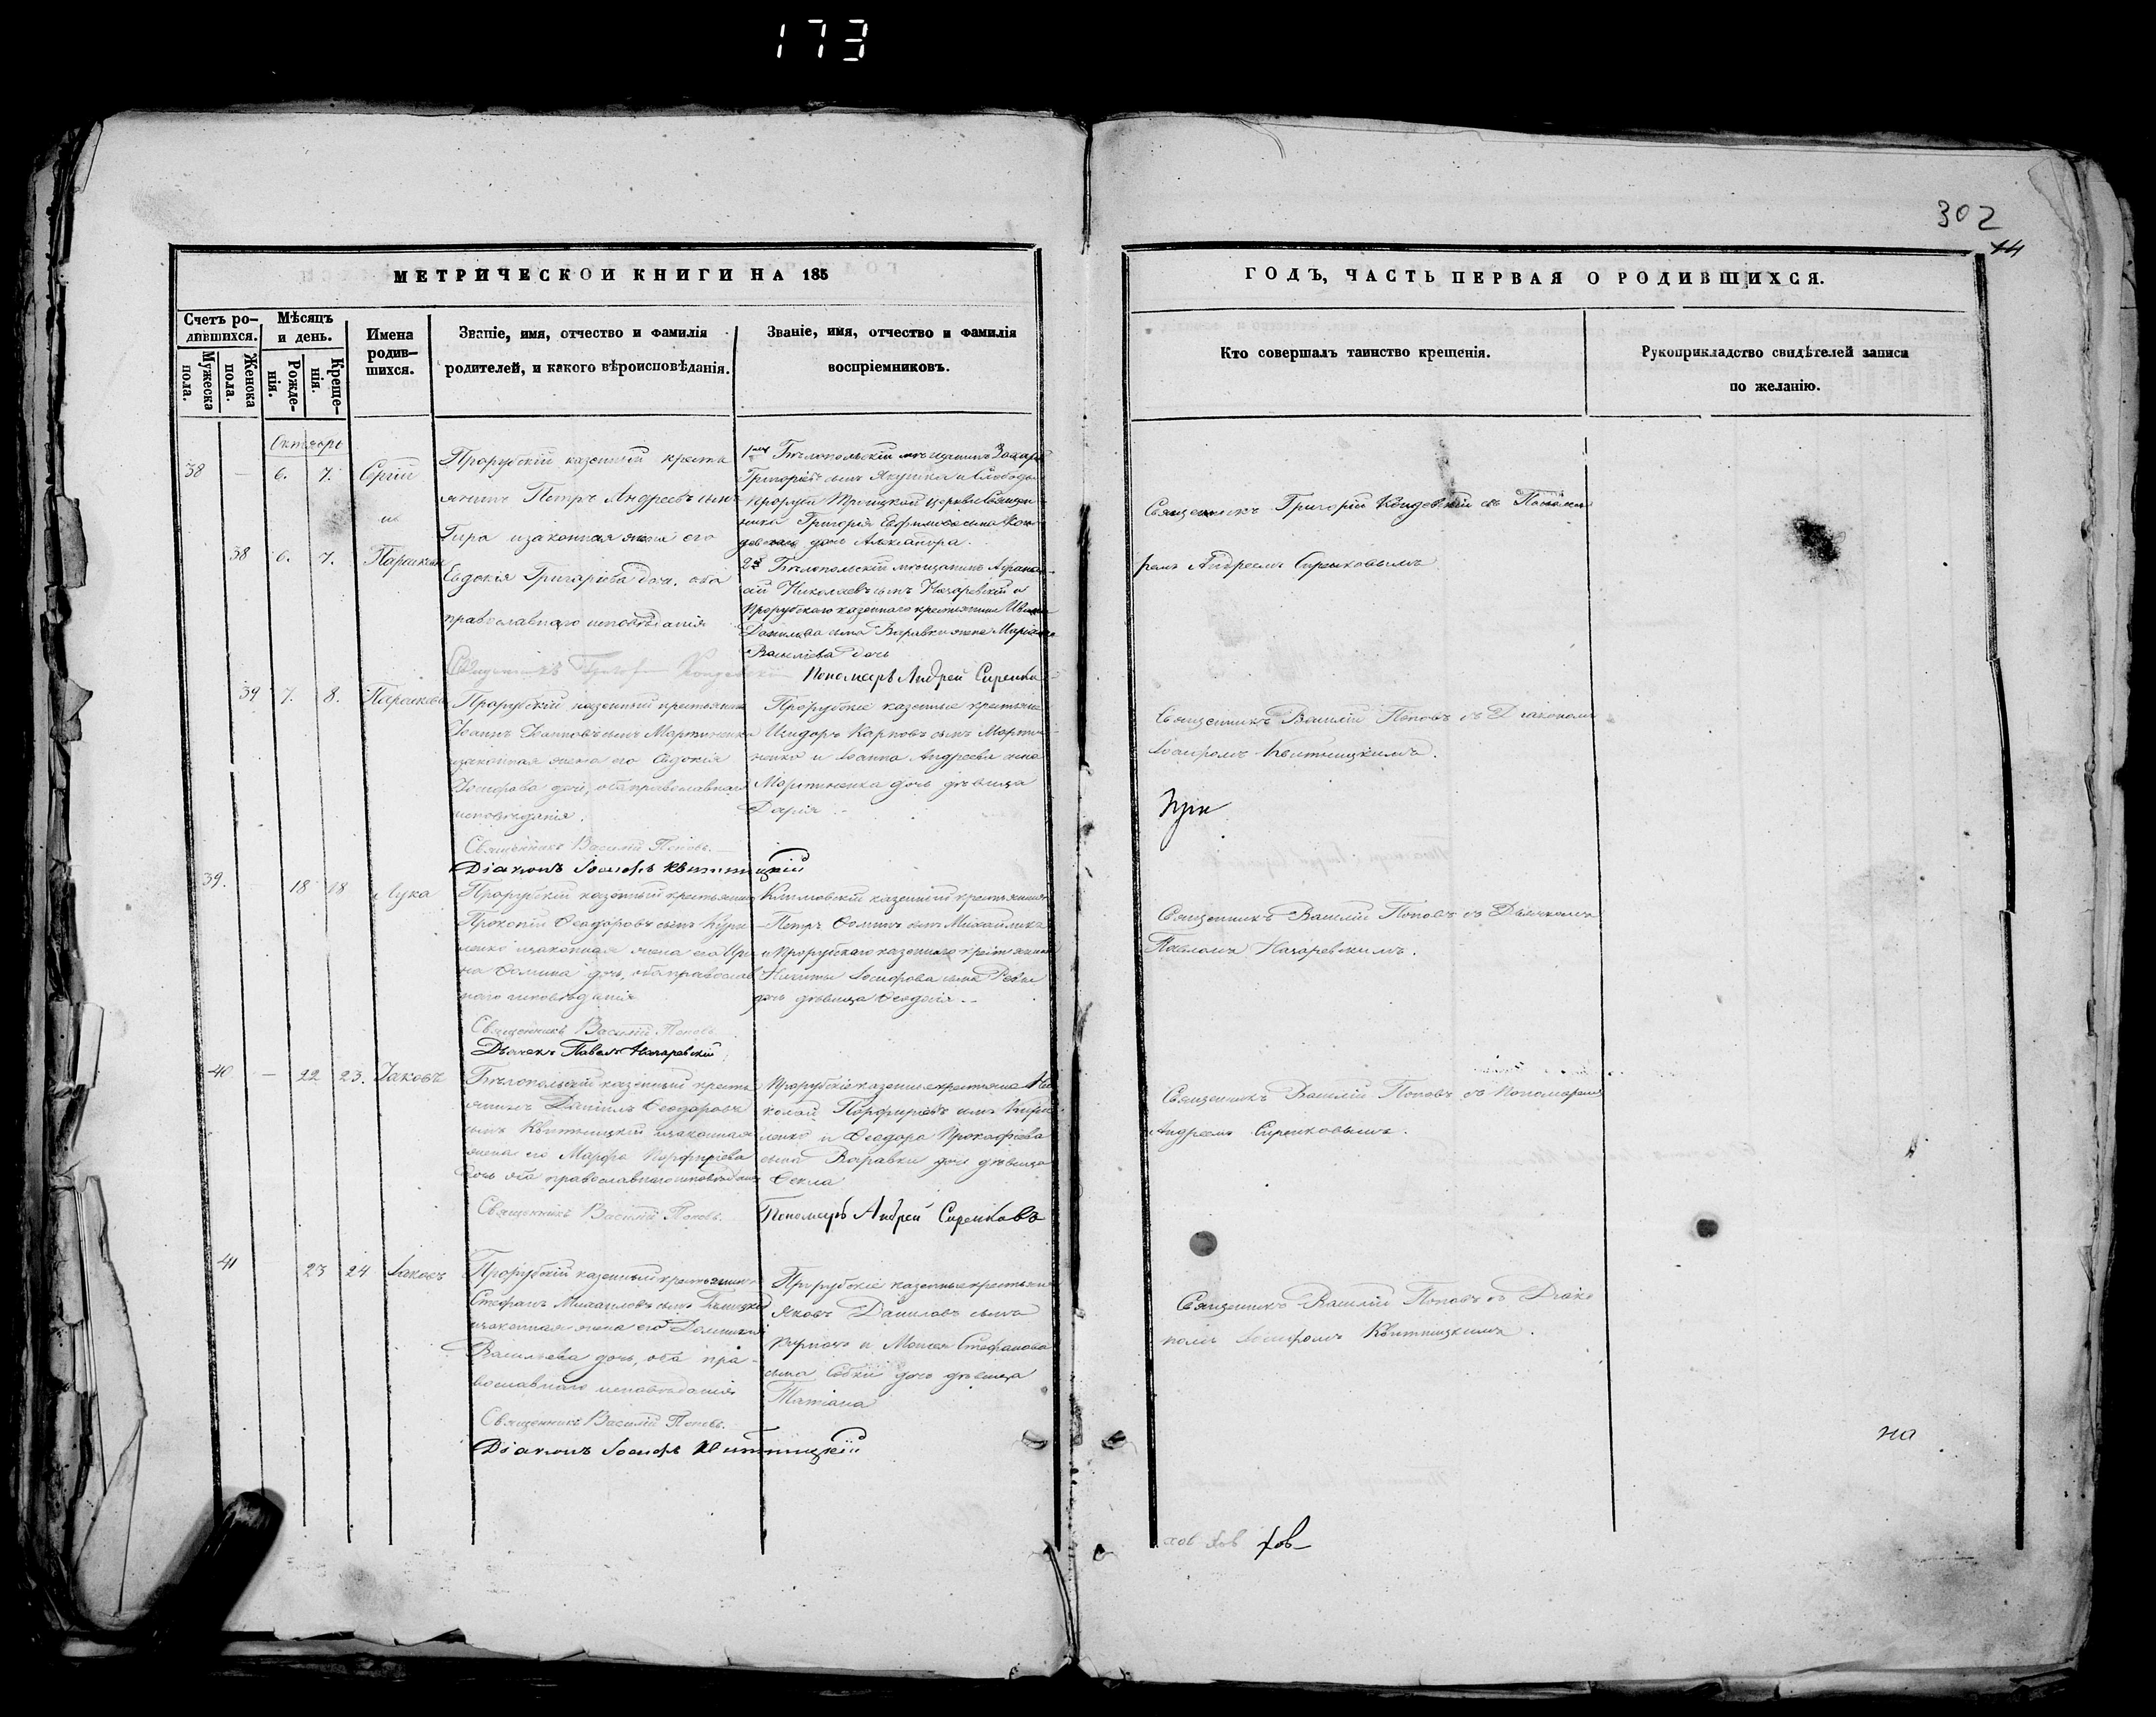 173
302
14
МЕТРИЧЕСКОЙ КНИГИ НА 185
Счетъ ро-
дившихся.
Мужеска
пола.
Женска
пола.
Мѣсяцъ
и день.
Рожде-
нія.
Креще-
нія.
Имена
родив-
шихся.
Званіе, имя, отчество и фамилія
родителей, и какого вѣроисповѣданія.
Званіе, имя, отчество и фамилія
воспріемниковъ.
Октябрь
38 — 6. 7. Сергій
и
38 6. 7.
Прорубскій казенный кресть
янинъ Петръ Андреевъ сынъ
Гира изаконная жена его
Евдокія Григоріева дочь, оба
православнаго исповѣданія
Бѣлопольскій мѣщанинъ
Григоріевъ сынъ Якушка и Слободы
Прорубы Троицкой церкви Священ
ника Григорія Евфиміева сына
дочь Александра.
Бѣлопольскій мѣщанинъ
Николаевъ сынъ Назаревскій и
Прорубскаго казеннаго крестьянина
Данилова сына Варавки жена
Василіева дочь
Священникъ
Пономарь Андрей
39 7. 8. Параскева
Прорубскій казенный крестьянинъ
Іоаннъ Іоанновъ сынъ Мартиненко
изаконная жена его Евдокія
Іосифова дочь, оба православнаго
исповѣданія.
Прорубскіе казенные крестьяне
Исидоръ Карповъ сынъ Марти
ненко и Іоанна Андреева сына
Мартиненка дочь дѣвица
Дарія.
Священникъ Василій Поповъ.
Діаконъ Іосифъ Квитницкій
39. 18 18 Лука
Прорубскій казенный крестьянинъ
Прокопій Феодоровъ сынъ Кири
ленко изаконная жена его Ири
на Фомина дочь, оба православ
наго исповѣданія
казенный крестьянинъ
Петръ Фоминъ сынъ
и Прорубскаго казеннаго крестьянина
Никиты Іосифова сына
дочь дѣвица Феодосія.
Священникъ Василій Поповъ
Дьячекъ Павелъ Назаревскій
40 — 22 23. Іаковъ
Бѣлопольскій казенный кресть
янинъ Даніилъ Феодоровъ
сынъ Квитницкій изаконная
жена его Марфа Порфиріева
дочь оба православнаго исповѣданія
Прорубскіе казенные крестьяне Ни
колай Порфиріевъ сынъ Кири
ленко и Феодора Прокофіева
сына Варавки дочь дѣвица
Фекла
Священникъ Василій Поповъ.
Пономарь Андрей Сиренковъ
41 23 24 Іаковъ
Прорубскій казенный крестьянинъ
Стефанъ Михаиловъ сынъ
изаконная жена его
Васильева дочь, оба пра-
вославнаго исповѣданія
Прорубскіе казенные крестьяне
Яковъ Даниловъ сынъ
и Моисея Стефанова
сына дочь дѣвица
Татіана
Священникъ Василій Поповъ.
Діаконъ Іосифъ Квитницкій
ГОДЪ, ЧАСТЬ ПЕРВАЯ О РОДИВШИХСЯ.
Кто совершалъ таинство крещенія.
Рукоприкладство свидѣтелей записи
по желанію.
Священникъ Григорій съ Понома
ремъ Андреемъ Сиренковымъ
Священникъ Василій Поповъ съ Діакономъ
Іосифомъ Квитницкимъ.
Священникъ Василій Поповъ съ Дьячкомъ
Павломъ Назаревскимъ.
Священникъ Василій Поповъ съ Пономаремъ
Андреемъ Сиренковымъ.
Священникъ Василій Поповъ съ Діако
номъ Іосифомъ Квитницкимъ.
на
хов хов хов